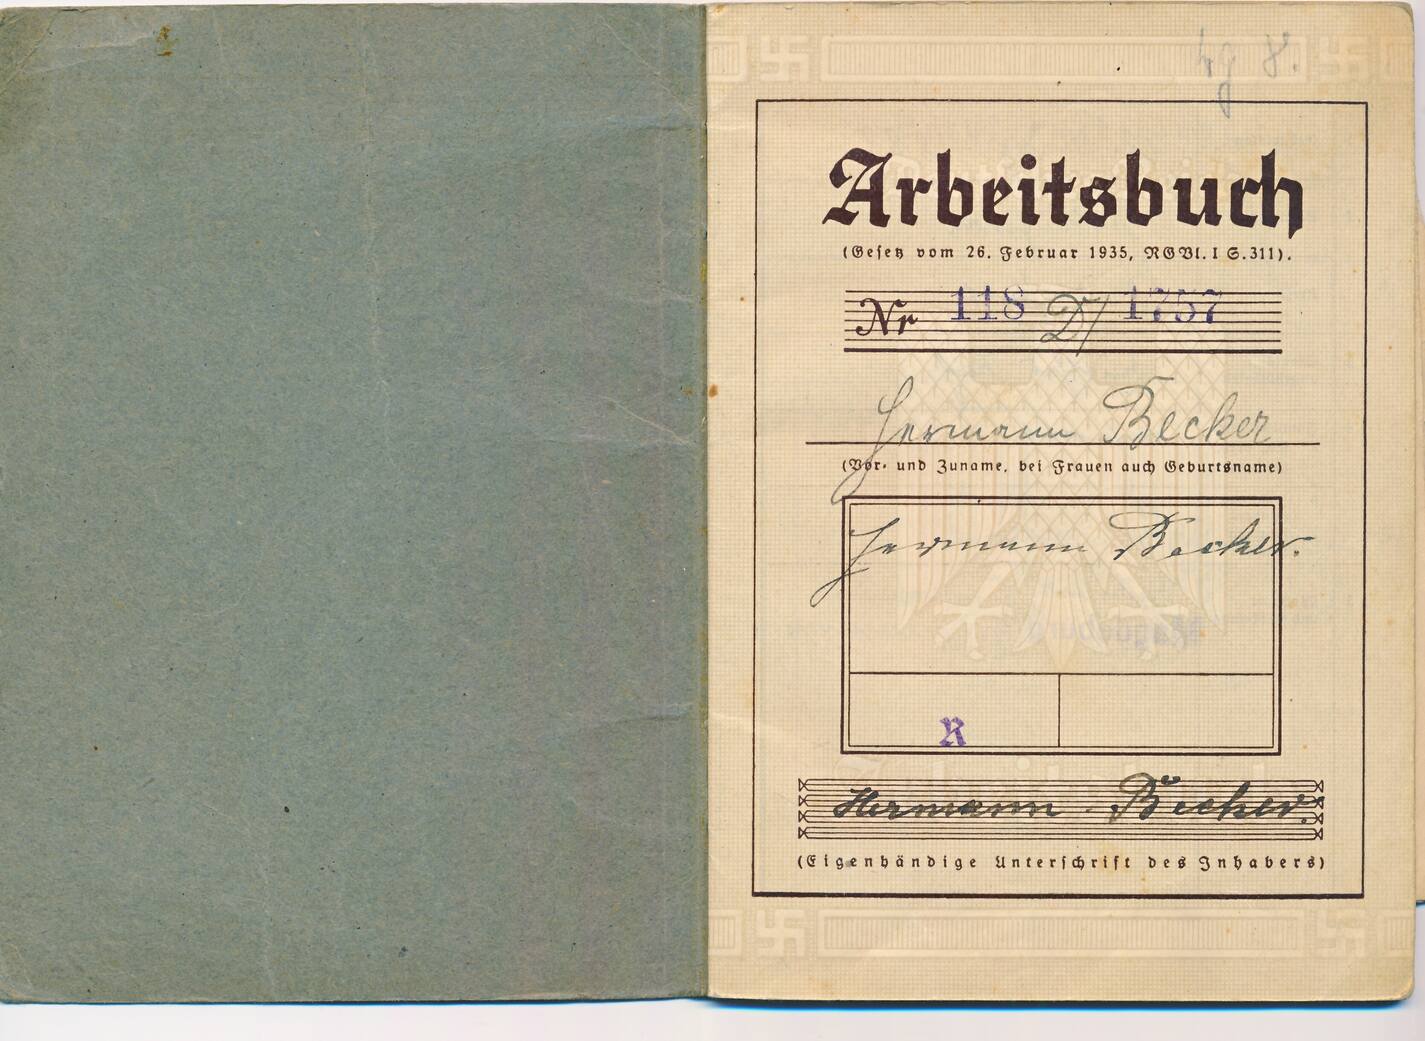 Arbeitsbuch
(Gesetz vom 26. Februar 1935, RGBl. I S. 311).
Nr 118 D/ 1757
Hermann Becker
(Vor- und Zuname, bei Frauen auch Geburtsname)
Hermann Becker.
R
Hermann Becker.
(Eigenhändige Unterschrift des Inhabers)